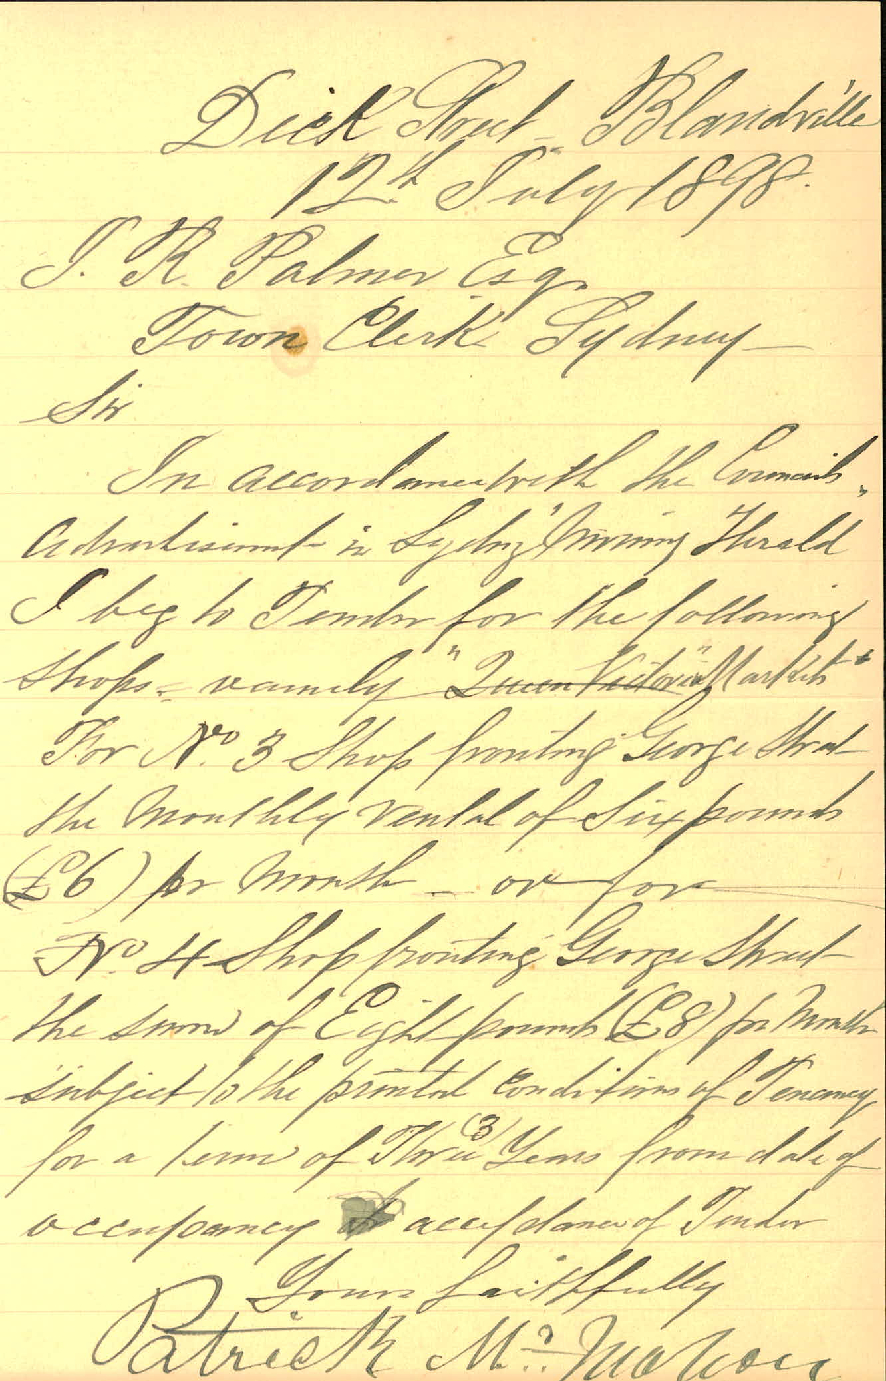 Dick Street Blandville
12th July 1898.
J. R. Palmer Esq.
Town Clerk Sydney
Sir
In accordance with the Councils
advertisement in Sydney "Morning Herald"
I beg to Tender for the following
shops - namely "Queen Victoria" Markets"
For No. 3 Shop fronting George Street
the Monthly rental of Six pounds
(£6) pr Month - or for
No. 4 Shop fronting George Street
the sum of Eight pounds (£8) pr Month
subject to the printed conditions of Tenancy
for a term of Three (3) Years from date of
occupancy acceptance of Tender
Yours faithfully
Patrick McMahon